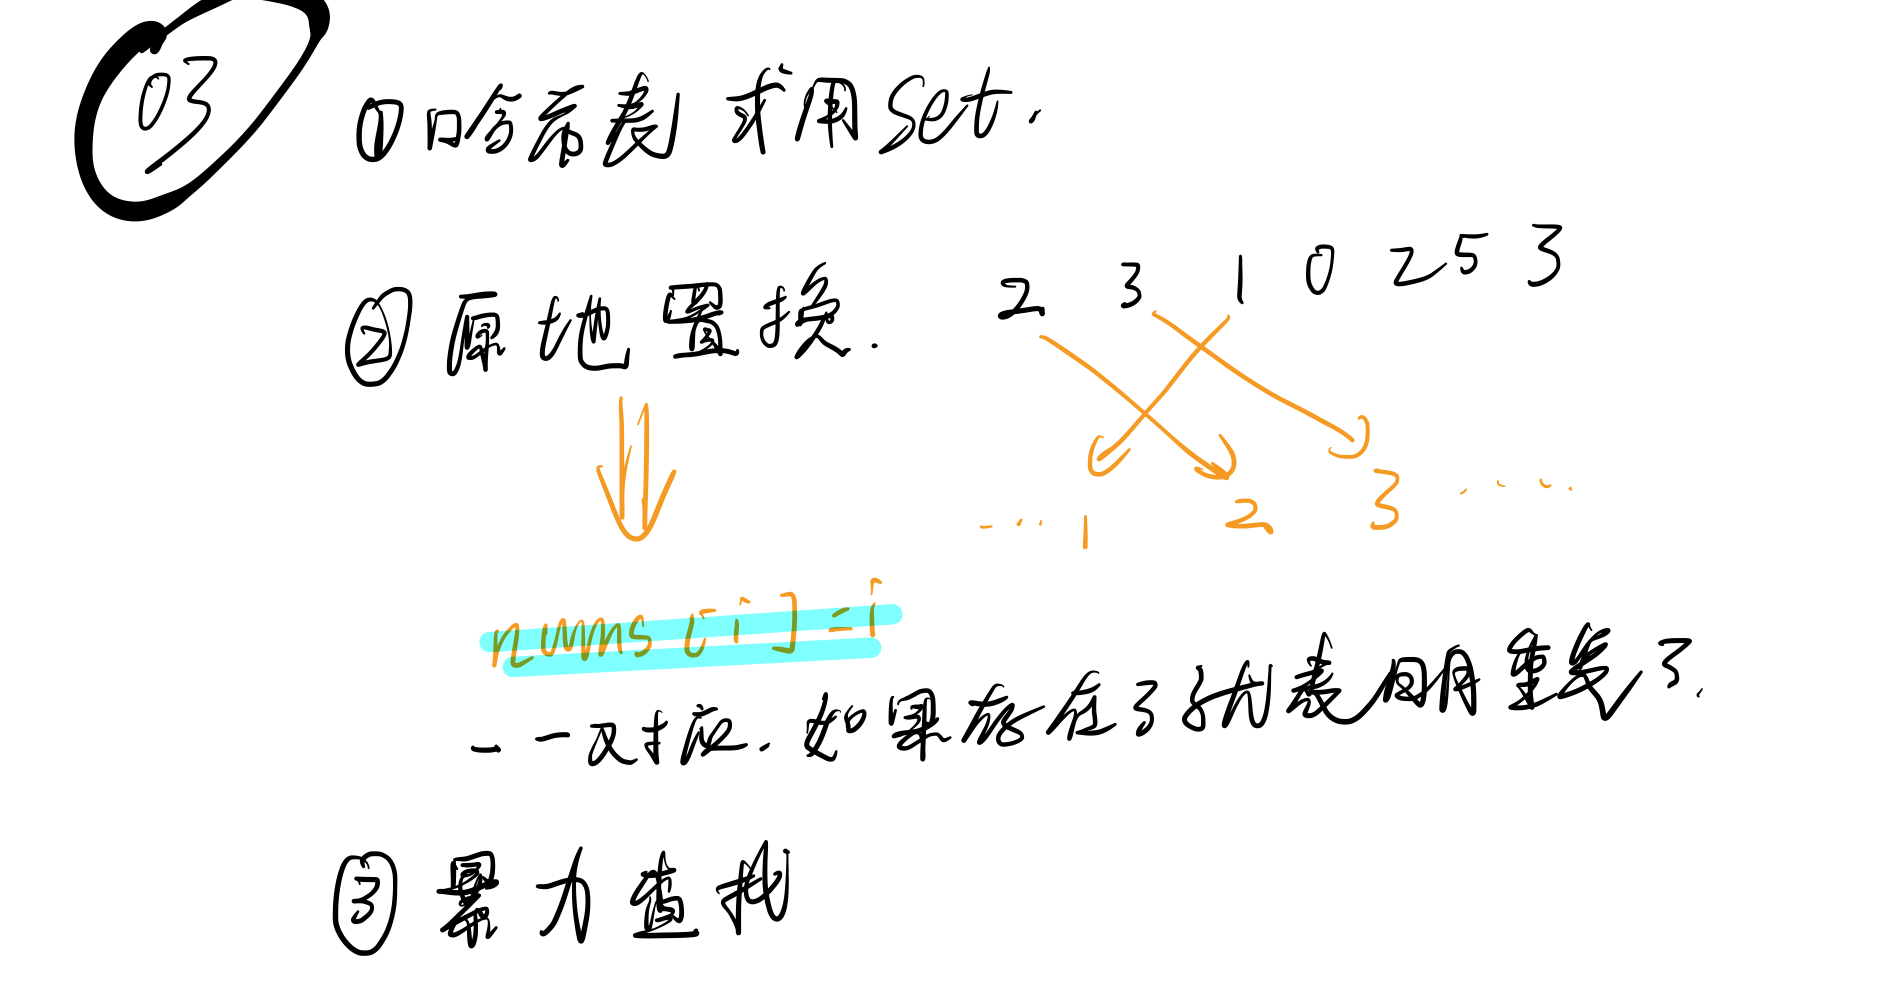 03
①哈希表 或用set.
②原地置换. 2 3 1 0 2 5 3
... 1 2 3 ....
nums[i]=i
一一对应. 如果存在了就表明重复了.
③暴力查找